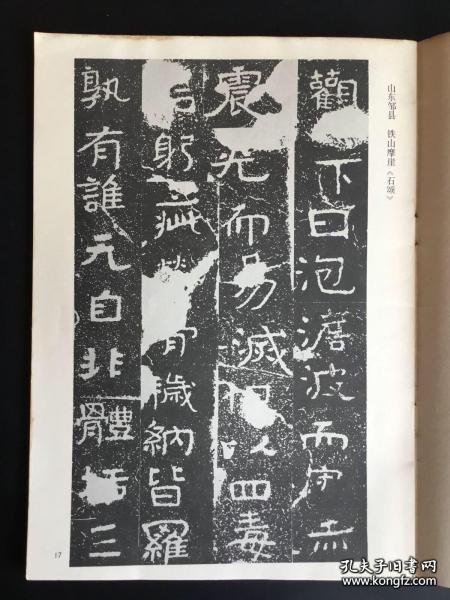 山东邹县 铁山摩崖《石颂》
觀 下曰泡澹波而守
震光而易滅 以四毒
躬 穢納皆羅
孰有誰元自非體 三
17
孔夫子旧书网
www.kongfz.com